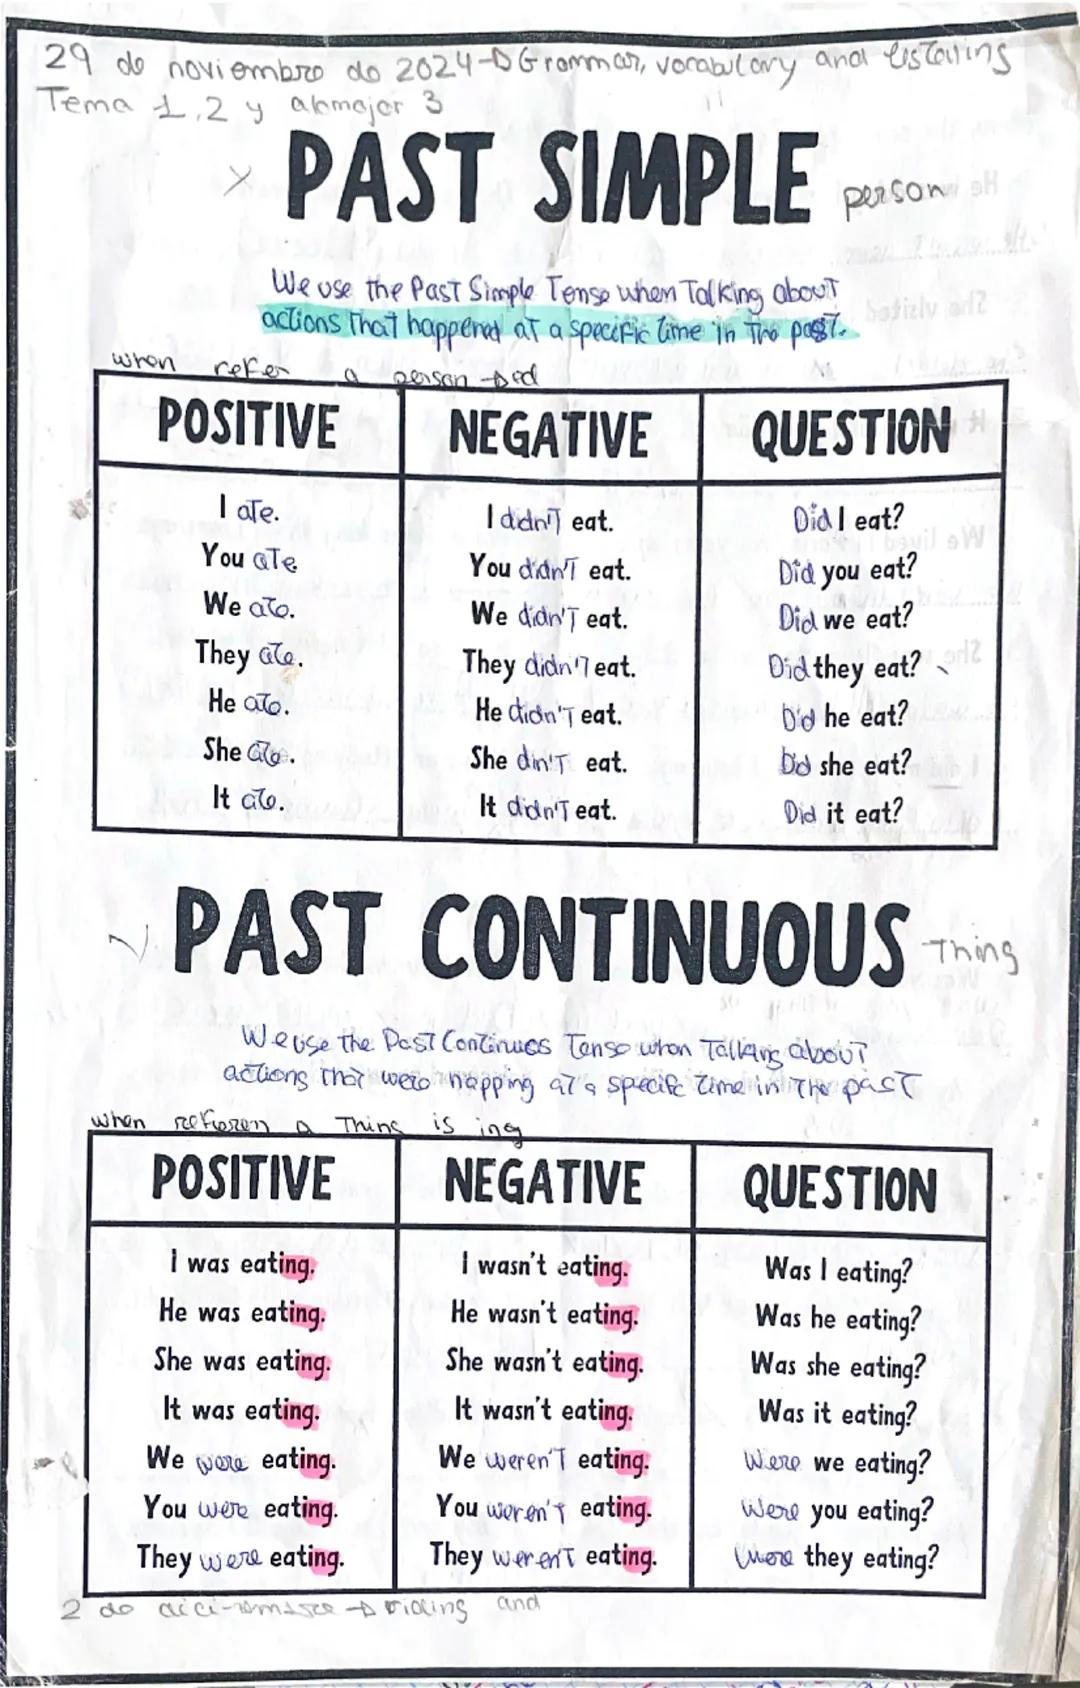 29 de noviembre do 2024 → Grammar, vocabulary and listening
Tema 1, 2 y 3
x PAST SIMPLE person
We use the Past Simple Tense when Talking about
actions That happend at a specific time in the past.
when refer a person → ed
POSITIVE NEGATIVE QUESTION
I ate. I didn't eat. Did I eat?
You ate You didn't eat. Did you eat?
We ate. We didn't eat. Did we eat?
They ate. They didn't eat. Did they eat?
He ate. He didn't eat. Did he eat?
She ate. She din't eat. Did she eat?
It ate. It didn't eat. Did it eat?
PAST CONTINUOUS Thing
We use the Past Continues Tense when Talking about
actions that were happing at a specific time in the past
when referen a Thing is ing
POSITIVE NEGATIVE QUESTION
I was eating. I wasn't eating. Was I eating?
He was eating. He wasn't eating. Was he eating?
She was eating. She wasn't eating. Was she eating?
It was eating. It wasn't eating. Was it eating?
We were eating. We weren't eating. Were we eating?
You were eating. You weren't eating. Were you eating?
They were eating. They weren't eating. Were they eating?
2 do → and